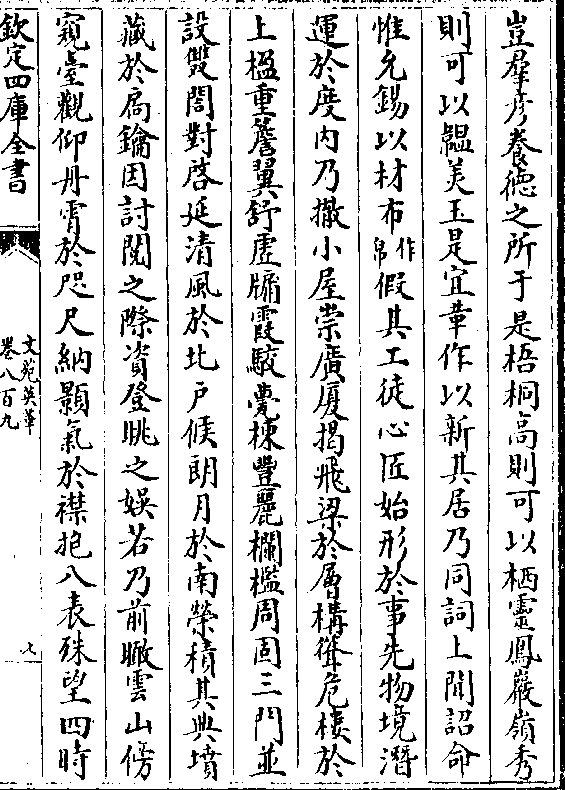 豈羣彦養德之所于是梧桐高則可以栖靈鳳巖嶺秀
則可以韞美玉是宜葺作以新其居乃同詞上聞詔命
惟允錫以材布作帛假其工徒心匠始形於事先物境潛
運於度内乃撤小屋崇廣厦揭飛梁於層構聳危棲於
上楹重簷翼舒虛牖霞駮甍棟豐麗欄檻周固三門並
設雙閤對啓延清風於北戸候朗月於南榮積其典墳
藏於扄鑰因討閲之際資登眺之娱若乃前瞰雲山傍
窺臺觀仰丹霄於咫尺納顥氣於襟抱八表殊望四時
欽定四庫全書
文苑英華
卷八百九
七